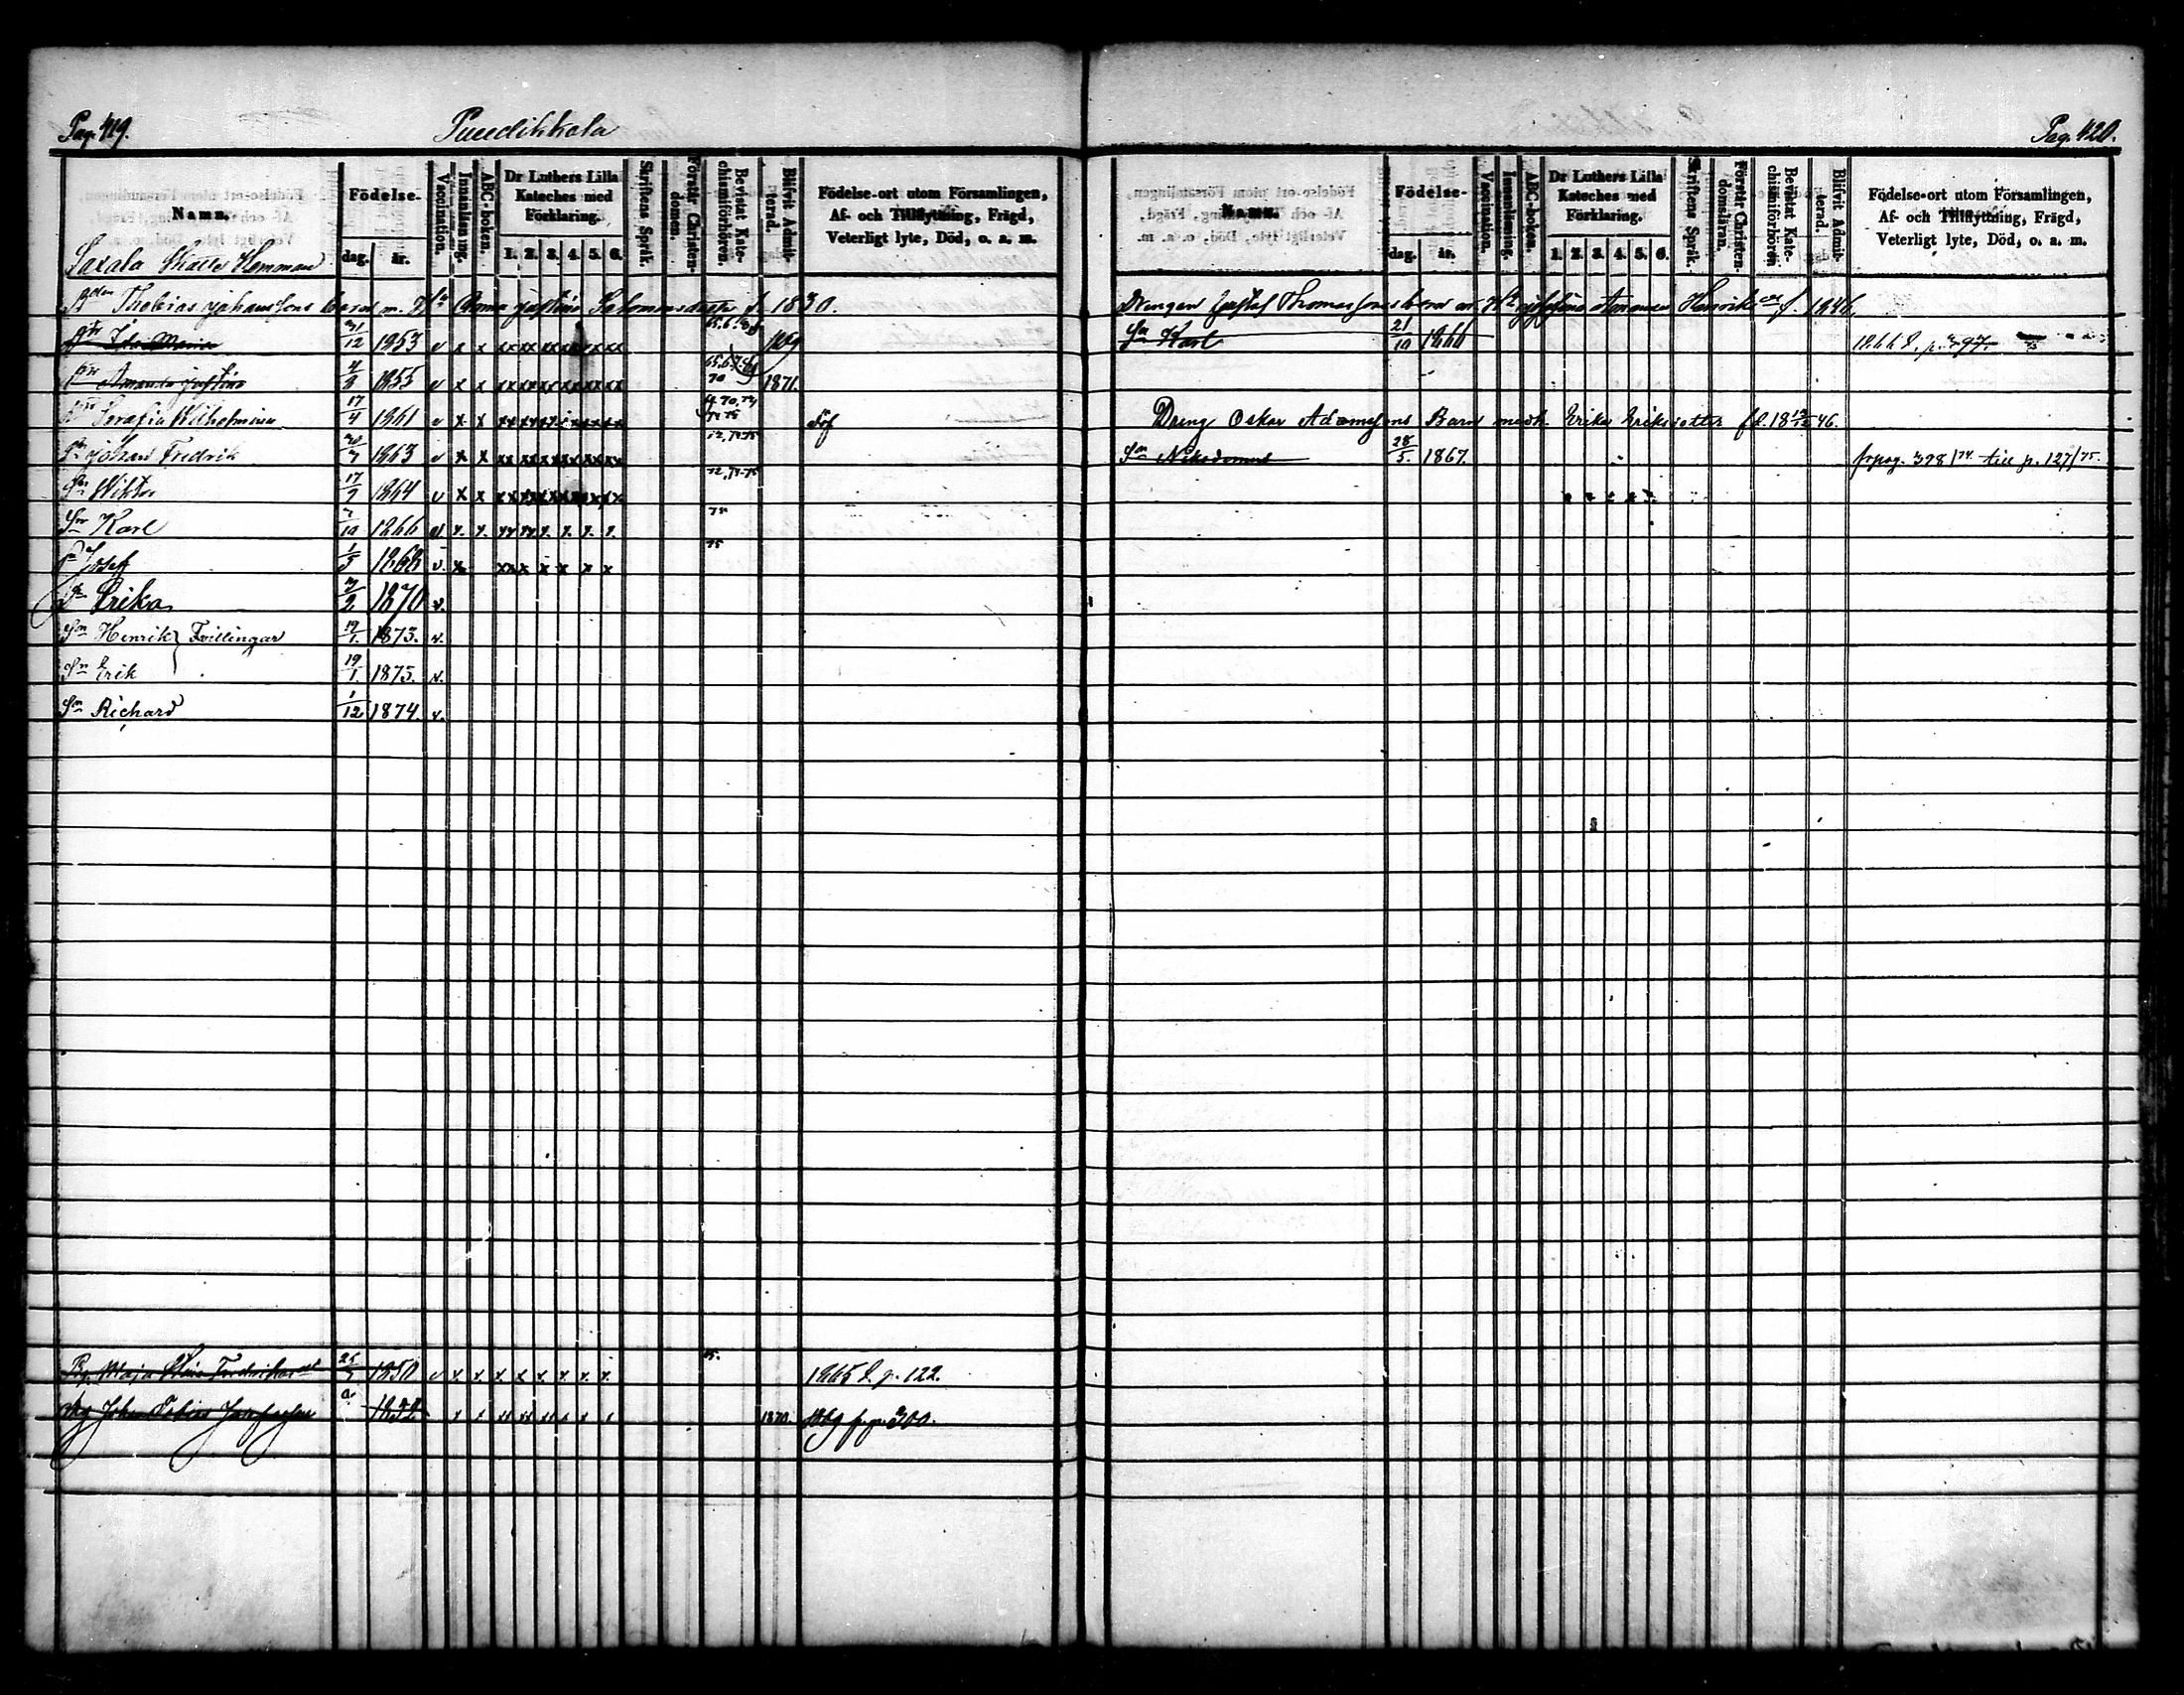 Pag. 419.
Puudikkala
Namn.
Födelse-
dag.
år.
Vaccination.
Innanläsning.
ABC-boken.
Dr Luthers Lilla
Kateches med
Förklaring.
1. 2. 3. 4. 5. 6.
Skriftens Språk.
Förstår Christen-
domen.
Bevistat Kate-
chismiförhören.
Blifvit Admit-
terad.
Födelse-ort utom Församlingen,
Af- och Tillflyttning, Frägd,
Veterligt lyte, Död, o. a. m.
Saxala Skatte Hemman
Bden Thobias Johanssons barn m. Hu Anna Justina Salomonsdotter f. 1830.
Dr Ida Maria 31/12 1853 v x x xx xx xx xx xx 1869
Dr Amanda Justina 4/3 1855 v x x 70 1871.
Dr Serafia Wilhelmina 17/4 1861 v x x döf
Sn Johan Fredrik 1863 v x x
Sn Wiktor 17/9 1864 v x x 72, 73-75
Sn Karl 7/10 1866 v x. x. 75
Sn Josef 1/5 1868 v. x 75
Dr Erika 1870 v.
Sn Henrik } Tvillingar 19/1. 1873. v.
Sn Erik 19/1. 1873. v.
Sn Richard 1/12 1874. v.
Pig. Maja Stina Fredriksd 25 1850 v x. x x x x x x x. 65. 1865 f. p. 122.
Drg Joh. Tobias 1870. 1869 fr. p. 300.
Pag. 420.
Namn.
Födelse-
dag.
år.
Vaccination.
Innanläsning.
ABC-boken.
Dr Luthers Lilla
Kateches med
Förklaring.
1. 2. 3. 4. 5. 6.
Skriftens Språk.
Förstår Christen-
domsläran.
Bevistat Kate-
chismiförhören
Blifvit Admit-
terad.
Födelse-ort utom Församlingen,
Af- och Tillflyttning, Frägd,
Veterligt lyte, Död, o. a. m.
Drengen Gustaf Thomassons barn m. Hu Josefina Amanda Henriksdr f. 1846
Sn Karl 21/10 1866 1866 f. p. 397.
Dreng Oskar Adamssons Barn med h. Erika Eriksdotter fd. 18 12/12 46.
Sn Nikodemus 28/5. 1867. fr pag. 398/74. till p. 127/75.